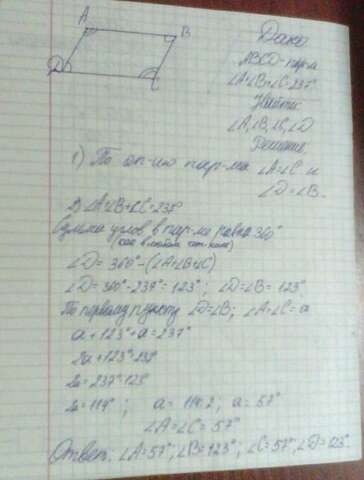 A
B
D
C
Дано
ABCD - пар-м
∠A+∠B+∠C=237°
Найти:
∠A, ∠B, ∠C, ∠D
Решение
1) По оп-ию пар-ма ∠A=∠C и
∠D=∠B.
2) ∠A+∠B+∠C=237°
Сумма углов в пар-ме равна 360°
(как в любом чет-нике)
∠D= 360°-(∠A+∠B+∠C)
∠D= 360°-237°=123°; ∠D=∠B= 123°
По первому пункту ∠D=∠B; ∠A=∠C= a
a+123°+a=237°
2a+123°=237°
2a=237°-123°
2a=114° ; a=114:2, a=57°
∠A=∠C= 57°
Ответ: ∠A=57°; ∠B=123°; ∠C=57°, ∠D=123°